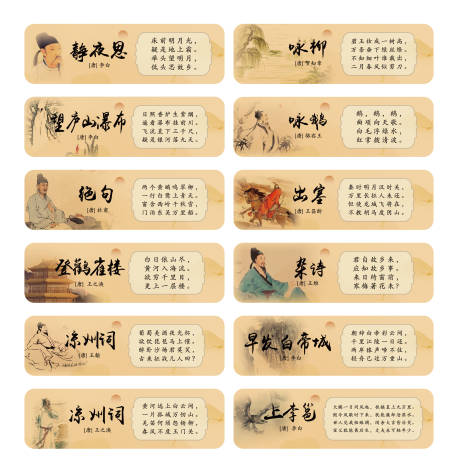 静夜思
[唐] 李白
床前明月光，
疑是地上霜。
举头望明月，
低头思故乡。
咏柳
[唐] 贺知章
碧玉妆成一树高，
万条垂下绿丝绦。
不知细叶谁裁出，
二月春风似剪刀。
望庐山瀑布
[唐] 李白
日照香炉生紫烟，
遥看瀑布挂前川。
飞流直下三千尺，
疑是银河落九天。
咏鹅
[唐] 骆宾王
鹅，鹅，鹅，
曲项向天歌。
白毛浮绿水，
红掌拨清波。
绝句
[唐] 杜甫
两个黄鹂鸣翠柳，
一行白鹭上青天。
窗含西岭千秋雪，
门泊东吴万里船。
出塞
[唐] 王昌龄
秦时明月汉时关，
万里长征人未还。
但使龙城飞将在，
不教胡马度阴山。
登鹳雀楼
[唐] 王之涣
白日依山尽，
黄河入海流。
欲穷千里目，
更上一层楼。
杂诗
[唐] 王维
君自故乡来，
应知故乡事。
来日绮窗前，
寒梅著花未？
凉州词
[唐] 王翰
葡萄美酒夜光杯，
欲饮琵琶马上催。
醉卧沙场君莫笑，
古来征战几人回？
早发白帝城
[唐] 李白
朝辞白帝彩云间，
千里江陵一日还。
两岸猿声啼不住，
轻舟已过万重山。
凉州词
[唐] 王之涣
黄河远上白云间，
一片孤城万仞山。
羌笛何须怨杨柳，
春风不度玉门关。
上李邕
[唐] 李白
大鹏一日同风起，扶摇直上九万里。
假令风歇时下来，犹能簸却沧溟水。
世人见我恒殊调，闻余大言皆冷笑。
宣父犹能畏后生，丈夫未可轻年少。